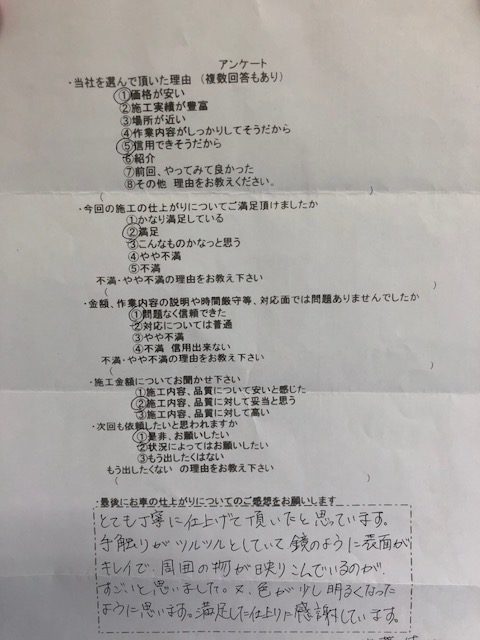 アンケート
・当社を選んで頂いた理由 (複数回答もあり)
①価格が安い
②施工実績が豊富
③場所が近い
④作業内容がしっかりしてそうだから
⑤信用できそうだから
⑥紹介
⑦前回、やってみて良かった
⑧その他 理由をお教えください。
( )
・今回の施工の仕上がりについてご満足頂けましたか
①かなり満足している
②満足
③こんなものかなっと思う
④やや不満
⑤不満
不満・やや不満の理由をお教え下さい
( )
・金額、作業内容の説明や時間厳守等、対応面では問題ありませんでしたか
①問題なく信頼できた
②対応については普通
③やや不満
④不満 信用出来ない
不満・やや不満の理由をお教え下さい
( )
・施工金額についてお聞かせ下さい
①施工内容、品質について安いと感じた
②施工内容、品質に対して妥当と思う
③施工内容、品質に対して高い
・次回も依頼したいと思われますか
①是非、お願いしたい
②状況によってはお願いしたい
③もう出したくはない
もう出したくない の理由をお教え下さい
( )
・最後にお車の仕上がりについてのご感想をお願いします
とても丁寧に仕上げて頂いたと思っています。
手触りがツルツルとしていて鏡のように表面が
キレイで、周囲の物が映りこんでいるのが、
すごいと思いました。又、色が少し明るくなった
ように思います。満足した仕上りに感謝しています。